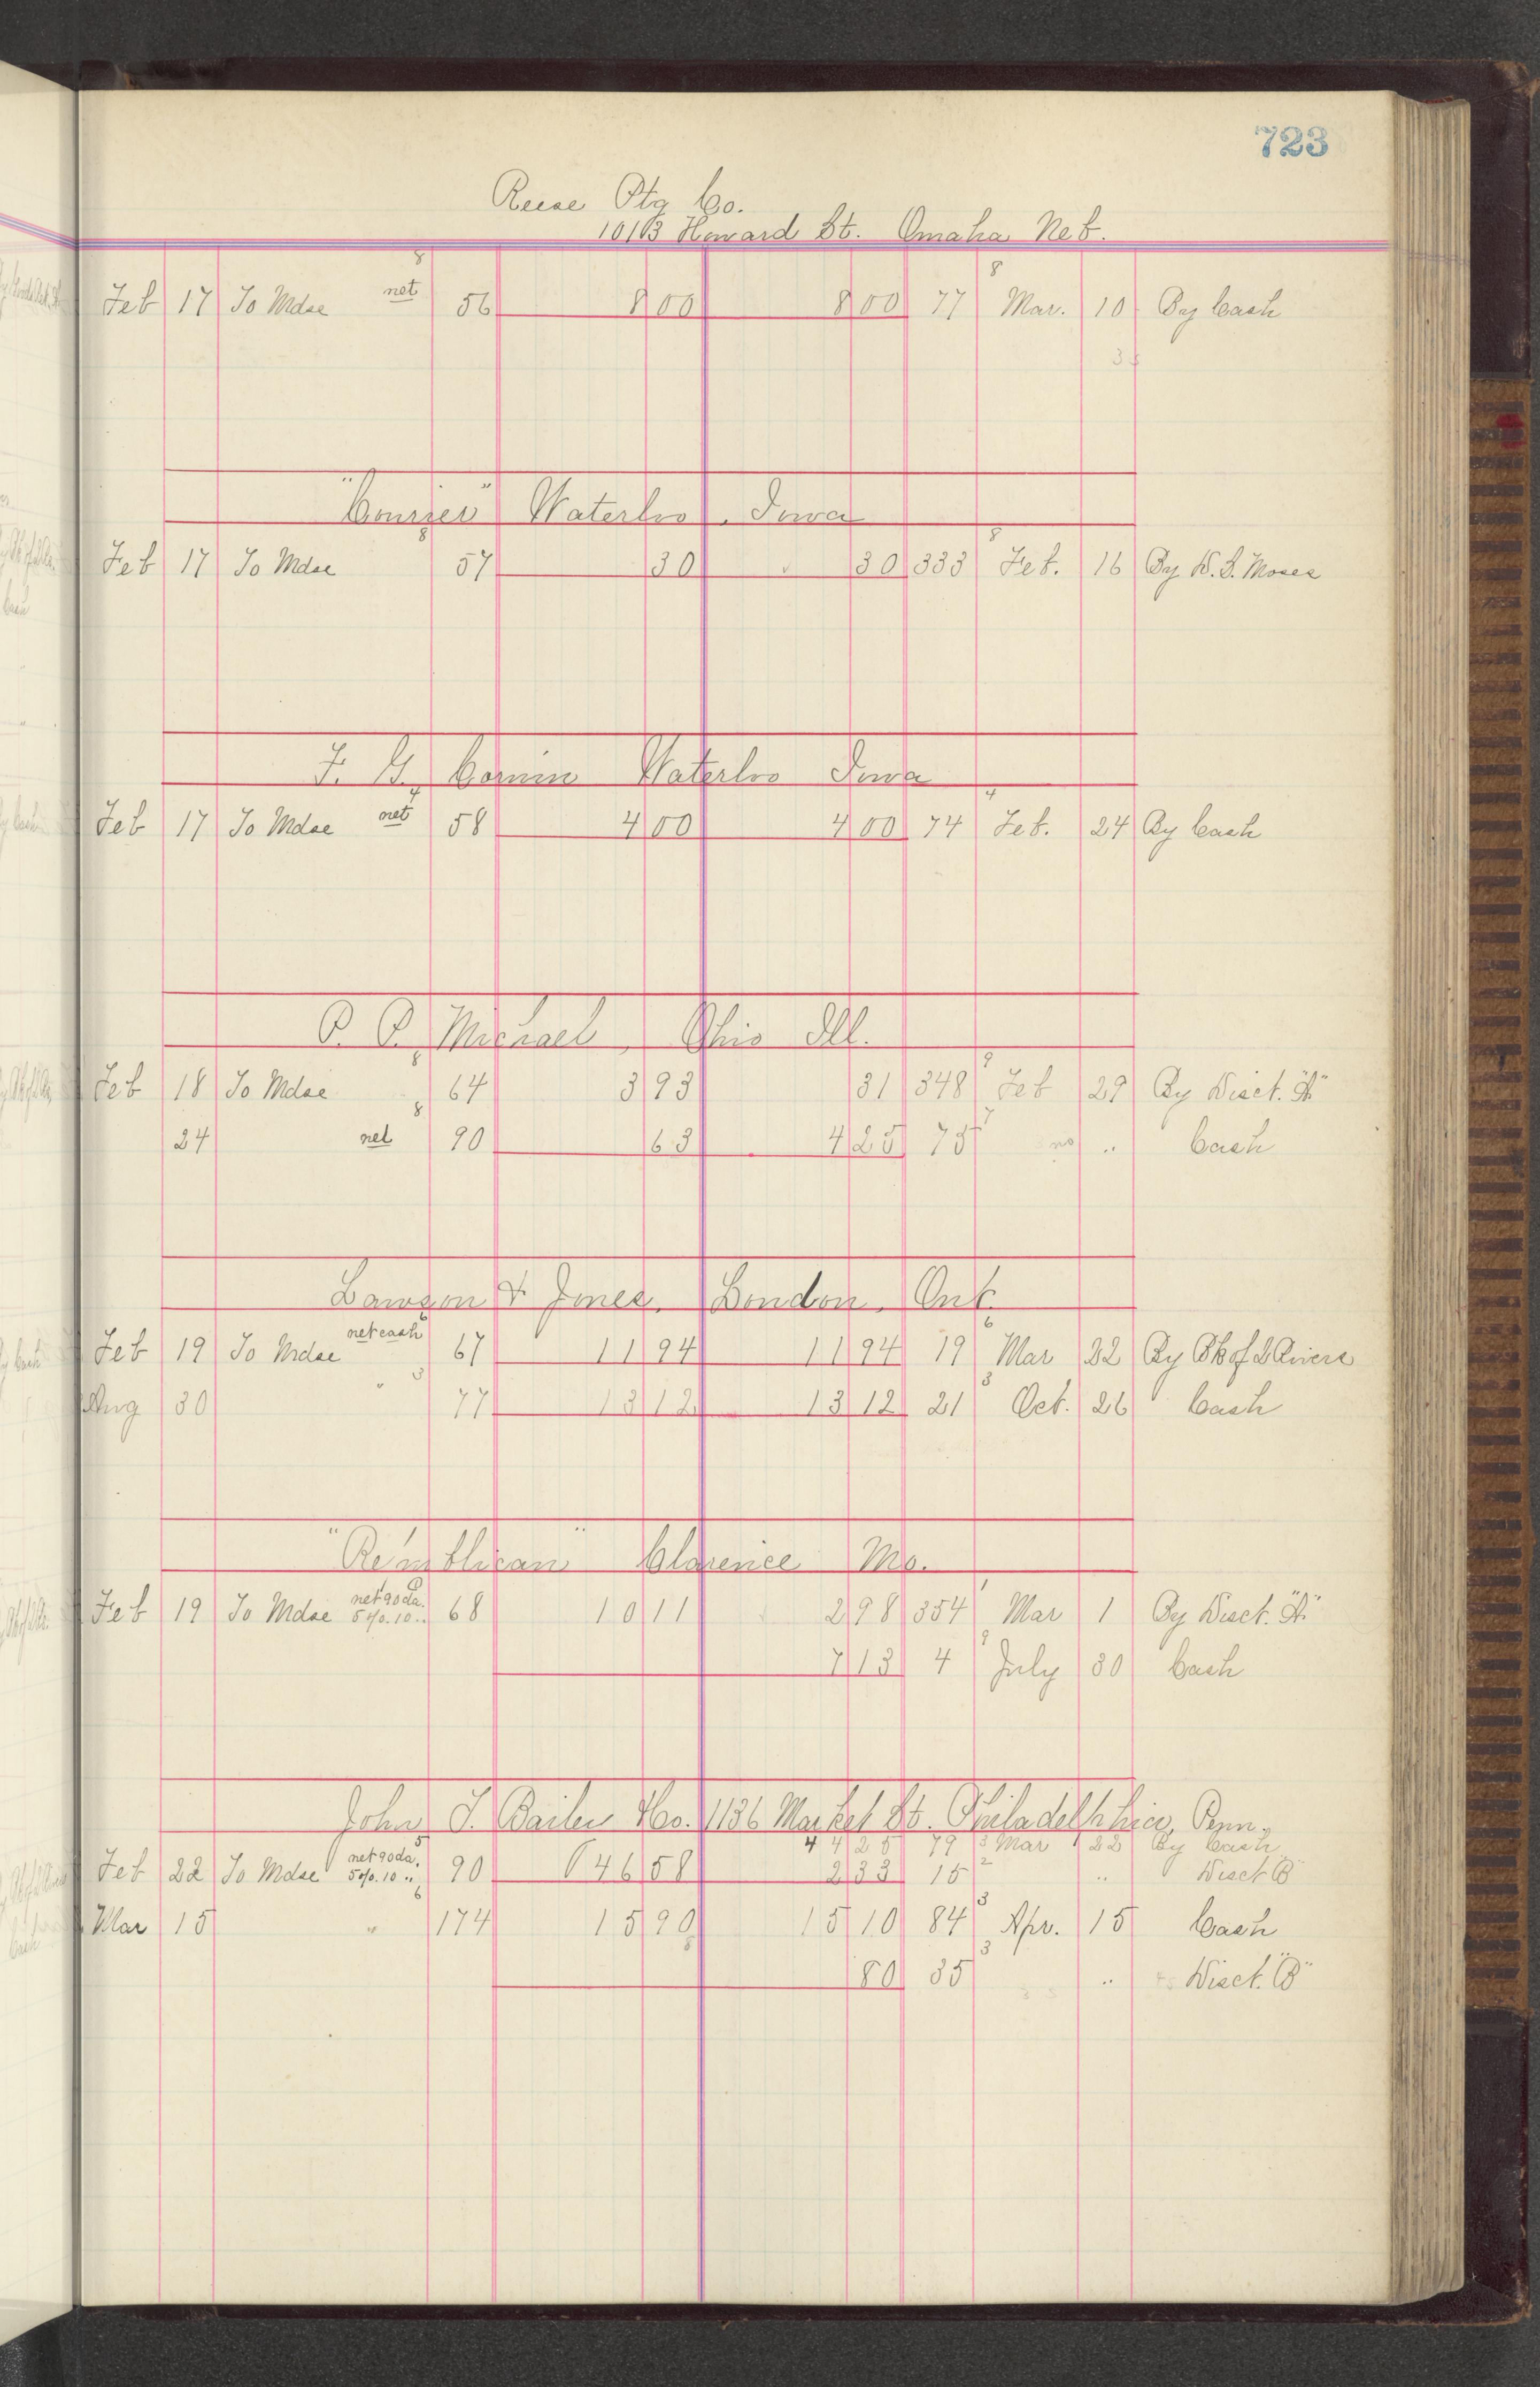 723
Reese Ptg Co.
1010 Howard St. Omaha Neb.
8 8
Feb 17 To Mdse net 56 8 00 8 00 77 Mar. 10 By Cash
"Courier" Waterloo, Iowa
8 8
Feb 17 To Mdse 57 30 30 333 Feb. 16 By D.S. Moses
F. G. Corwin Waterloo Iowa
4 4
Feb 17 To Mdse net 58 4 00 4 00 74 Feb. 24 By Cash
P. P. Michael, Ohio Ill.
8 9
Feb 18 To Mdse 64 3 93 31 348 Feb 29 By Disct. "A"
8 7
24 net 90 63 4 25 75 no " Cash
Lawson & Jones, London, Ont.
6 6
Feb 19 To Mdse net cash 67 11 94 11 94 19 Mar 22 By Bk of 2 Rivers
3 3
Aug 30 " 77 13 12 13 12 21 Oct. 26 Cash
"Republican" Clarence Mo.
Feb 19 To Mdse net 90 da. 5%. 10 .. 68 10 11 2 98 354 Mar 1 By Disct. "A"
9
7 13 4 July 30 Cash
John T. Bailey & Co. 1136 Market St. Philadelphia, Penn.
44 25 79 3 Mar 22 By Cash
Feb 22 To Mdse net 90 da. 5%. 10 .. 90 46 58 2 33 15 2 " Disct B
6 3
Mar 15 " 174 15 90 15 10 84 Apr. 15 Cash
3
80 35 " Disct. "B"